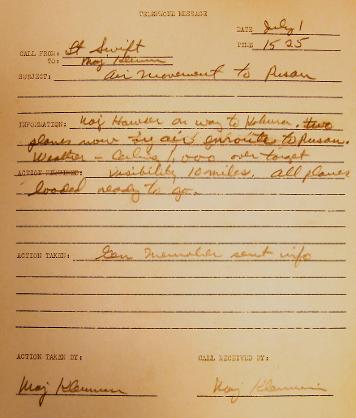 TELEPHONE MESSAGE
DATE July 1
CALL FROM: Lt Swift TIME 1525
TO: Maj
SUBJECT: Air movement to Pusan
INFORMATION: Maj on way to Kokura. two
planes now in air enroute to Pusan.
Weather - Ceiling 1,000 over target
ACTION REQUIRED: visibility 10 miles. All planes
loaded ready to go.
ACTION TAKEN: Gen sent info
ACTION TAKEN BY: CALL RECEIVED BY:
Maj Maj